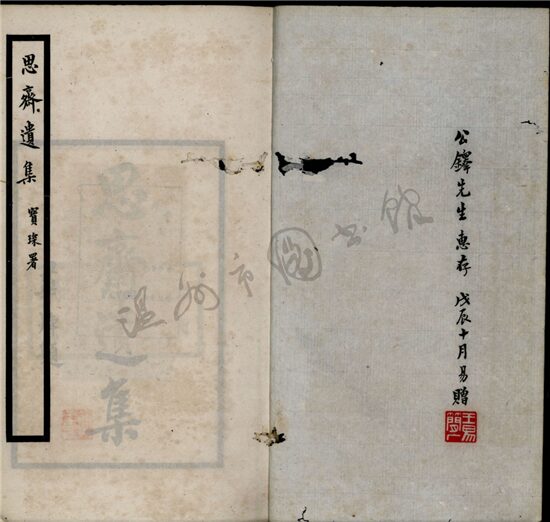 公鐸先生惠存 戊辰十月易贈
思齋遺集 寶琛署
思齋遺集
温州市图书馆